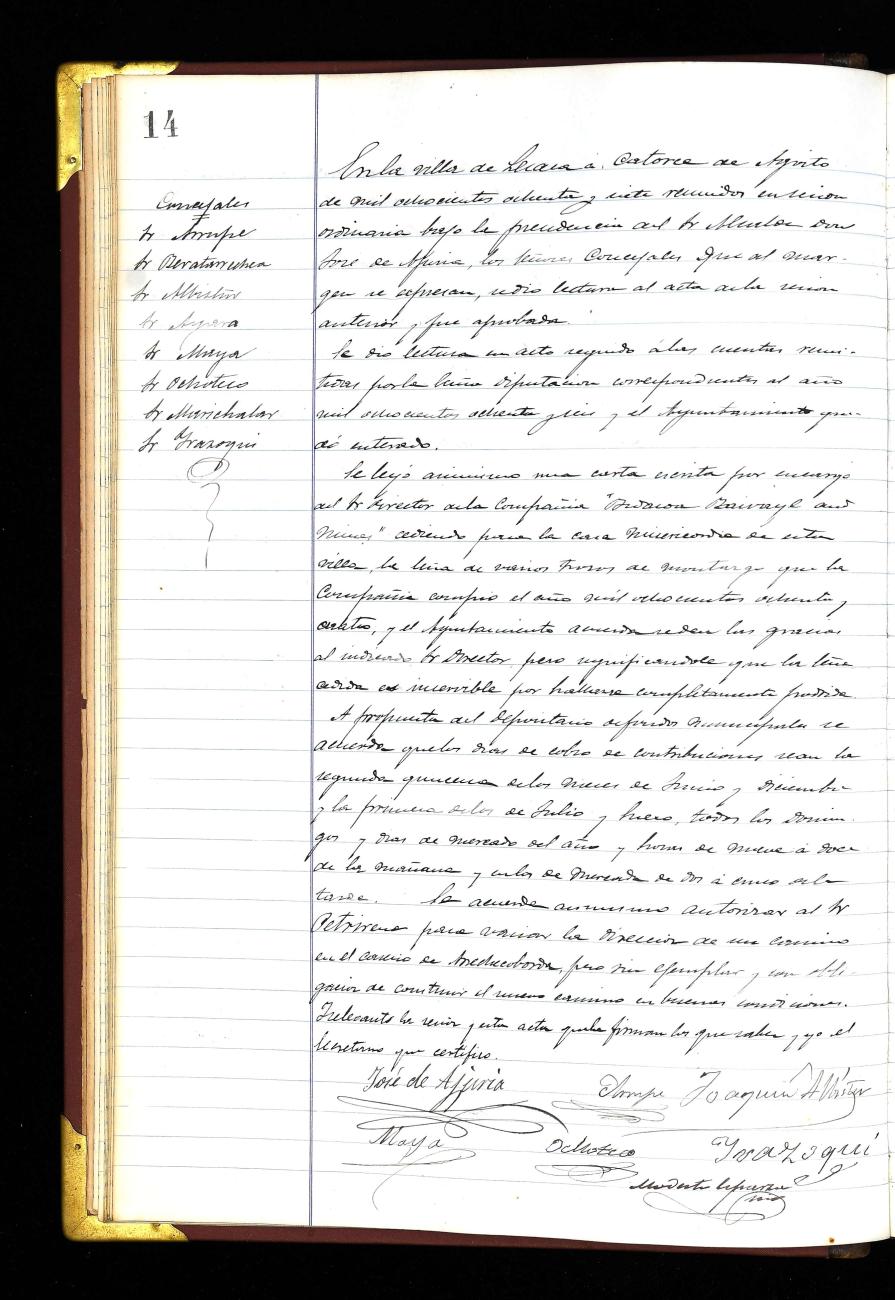 14
Concejales
Sr Arrupe
Sr Beratarrechea
Sr Albistur
Sr Ayera
Sr Maya
Sr Ochoteco
Sr Marichalar
Sr Irazoqui
En la villa de Lesaca á catorce de Agosto
de mil ochocientos ochenta y siete reunidos en sesion
ordinaria bajo la presidencia del Sr Alcalde don
José de Ajuria, los Señores Concejales que al mar-
gen se expresan, se dio lectura al acta de la sesion
anterior y fue aprobada.
Se dio lectura en acto seguido á las cuentas remi-
tidas por la Excma Diputacion correspondientes al año
mil ochocientos ochenta y seis y el Ayuntamiento que-
dó enterado.
Se leyó asimismo una carta escrita por encargo
del Sr Director de la Compañia "Bidasoa Raivayl and
Mines" cediendo para la casa Misericordia de esta
villa, la leña de varios trozos de montazgo que la
Compañia compró el año mil ochocientos ochenta y
cuatro, y el Ayuntamiento acuerda se den las gracias
al indicado Sr Director, pero significandole que la leña
cedida es inservible por hallarse completamente podrida.
A propuesta del depositario de fondos municipales se
acuerda que los dias de cobro de contribuciones sean la
segunda quincena de los meses de Junio y Diciembre
y la primera de los de Julio y Enero, todos los Domin-
gos y dias de mercado del año y horas de nueve á doce
de la mañana y en los de Mercado de dos á cinco de la
tarde. Se acuerda asimismo autorizar al Sr
Petrirena para variar la direccion de un camino
en el caserio de Bredicoborda, pero sin ejemplar y con obli-
gacion de construir el nuevo camino en buenas condiciones.
Y levantó la sesion y esta acta que la firman los que saben y yo el
Secretario que certifico.
José de Ajuria Arrupe Joaquin Albistur
Maya Ochoteco Irazoqui
Modesto